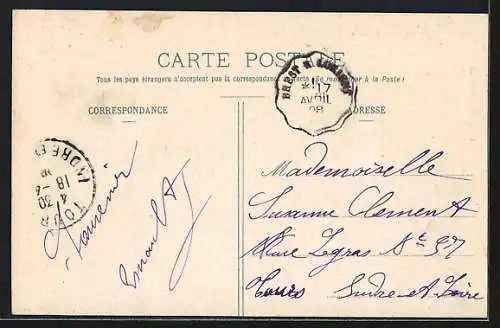 CARTE POSTALE
Tous les pays étrangers n'acceptent pas la correspondance au recto (Se renseigner à la Poste)
CORRESPONDANCE
ADRESSE
BREST A
*17
AVRIL
08
TOURS
4 30
18 -4
INDRE ET
Souvenir
Mademoiselle
Suzanne Clement
Rue Legras Nº 37
Tours Indre et Loire